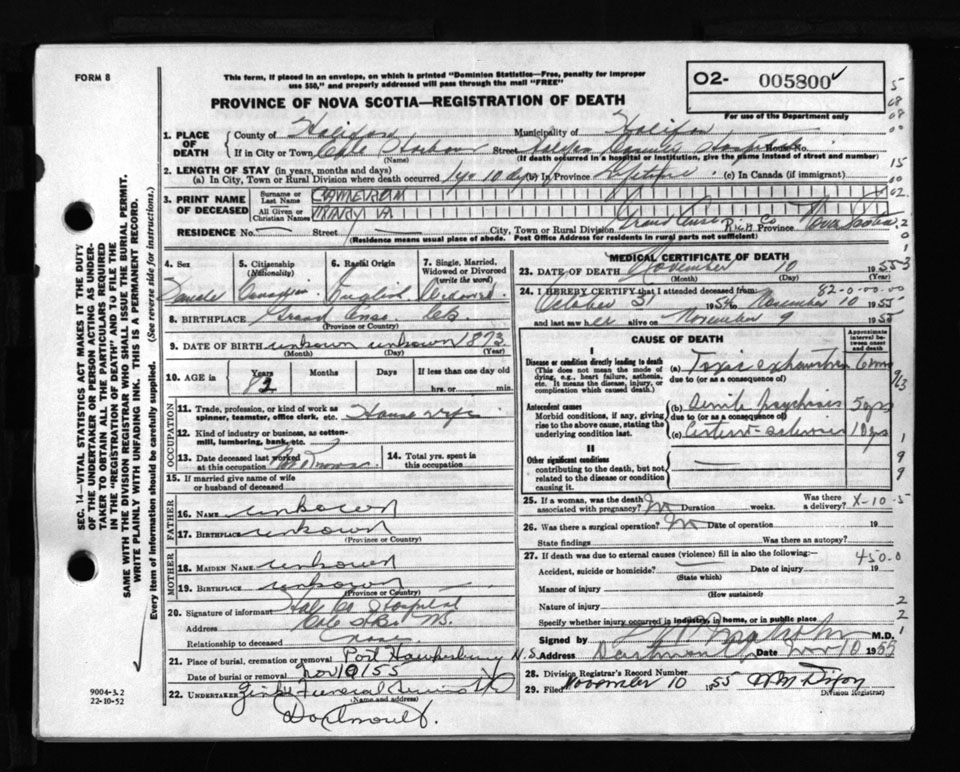 FORM 8
This form, if placed in an envelope, on which is printed "Dominion Statistics—Free, penalty for improper
use $50," and properly addressed will pass through the mail "FREE"
O2- 005800
For use of the Department only
PROVINCE OF NOVA SCOTIA—REGISTRATION OF DEATH
1. PLACE OF DEATH
County of Halifax Municipality of Halifax
If in City or Town Cole Harbour Street Halifax County Hospital House No.
(Name) (If death occurred in a hospital or institution, give the name instead of street and number)
2. LENGTH OF STAY (in years, months and days)
(a) In City, Town or Rural Division where death occurred 1 yr 10 days (b) In Province Lifetime (c) In Canada (if immigrant)
3. PRINT NAME OF DECEASED
Surname or Last Name CAMERON
All Given or Christian Names MARY A
RESIDENCE No. Street City, Town or Rural Division Grand Anse Rich Co Province Nova Scotia
(Residence means usual place of abode. Post Office Address for residents in rural parts not sufficient)
4. Sex Female
5. Citizenship (Nationality) Canadian
6. Racial Origin English
7. Single, Married, Widowed or Divorced (write the word) Widowed
8. BIRTHPLACE Grand Anse C.B.
(Province or Country)
9. DATE OF BIRTH unknown unknown 1873
(Month) (Day) (Year)
10. AGE in Years Months Days If less than one day
82 hrs. or min.
OCCUPATION
11. Trade, profession, or kind of work as spinner, teamster, office clerk, etc. House wife
12. Kind of industry or business, as cotton-mill, lumbering, bank, etc.
13. Date deceased last worked at this occupation Not Known
14. Total yrs. spent in this occupation
15. If married give name of wife or husband of deceased
FATHER
16. NAME unknown
17. BIRTHPLACE unknown
(Province or Country)
MOTHER
18. MAIDEN NAME unknown
19. BIRTHPLACE unknown
(Province or Country)
20. Signature of informant Hal Co Hospital
Address Cole Hbr NS
Relationship to deceased none
21. Place of burial, cremation or removal Port Hawkesbury N.S.
Date of burial or removal Nov 10/55
22. UNDERTAKER Funeral Service
(Name and address)
Dartmouth
9004-3.2
22-10-52
SEC. 14—VITAL STATISTICS ACT MAKES IT THE DUTY
OF THE UNDERTAKER OR PERSON ACTING AS UNDER-
TAKER TO OBTAIN ALL THE PARTICULARS REQUIRED
IN THE "REGISTRATION OF DEATH" AND TO FILE THE
SAME WITH THE DIVISION REGISTRAR WHO SHALL ISSUE THE BURIAL PERMIT.
WRITE PLAINLY WITH UNFADING INK. THIS IS A PERMANENT RECORD.
Every item of information should be carefully supplied. (See reverse side for instructions.)
MEDICAL CERTIFICATE OF DEATH
23. DATE OF DEATH November 10 1955
(Month) (Day) (Year)
24. I HEREBY CERTIFY that I attended deceased from: 82-0-00-00
October 31 1954 November 10 1955
and last saw her alive on November 9 1955
CAUSE OF DEATH
Approximate interval between onset and death
I
Disease or condition directly leading to death
(This does not mean the mode of dying, e.g., heart failure, asthenia, etc. It means the disease, injury, or complication which caused death.)
(a) Toxic exhaustion 6 mos
due to (or as a consequence of)
Antecedent causes
Morbid conditions, if any, giving rise to the above cause, stating the underlying condition last.
(b) Senile Psychosis 5 yrs
due to (or as a consequence of)
(c) 10 yrs
II
Other significant conditions
contributing to the death, but not related to the disease or condition causing it.
25. If a woman, was the death associated with pregnancy? No Duration weeks. Was there a delivery? X-10-5
26. Was there a surgical operation? No Date of operation 19
State findings Was there an autopsy?
27. If death was due to external causes (violence) fill in also the following: 450-0
Accident, suicide or homicide? Date of injury 19
(State which)
Manner of injury
(How sustained)
Nature of injury
Specify whether injury occurred in industry, in home, or in public place
Signed by M.D.
Address Dartmouth Date Nov 10 1955
28. Division Registrar's Record Number
29. Filed November 10 1955 Wm Dixon
Division Registrar